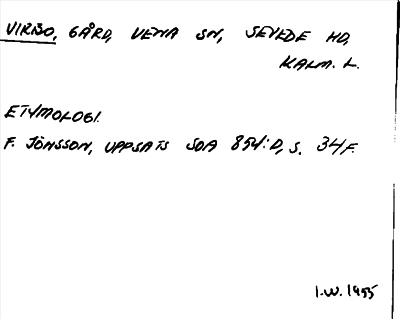 VIRBO, GÅRD, VENA SN, SEVEDE HD,
KALM. L.
ETYMOLOGI.
F. JÖNSSON, UPPSATS SOA 854:D, S. 34 F.
I.W. 1955